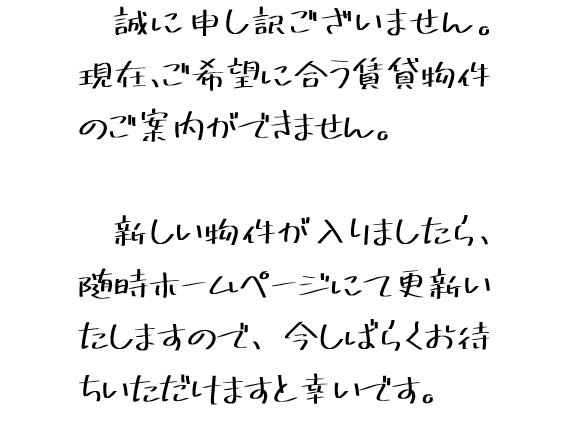 誠に申し訳ございません。
現在、ご希望に合う賃貸物件
のご案内ができません。
新しい物件が入りましたら、
随時ホームページにて更新い
たしますので、今しばらくお待
ちいただけますと幸いです。